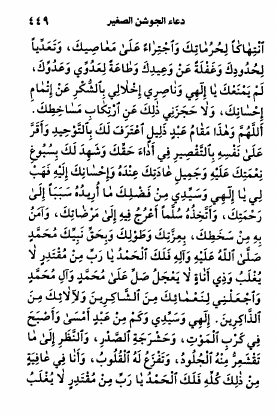 دعاء الجوشن الصغير ٤٤٩
اِنْتِهَاكًا لِحُرُمَاتِكَ وَاجْتِرَاءً عَلَىٰ مَعَاصِيكَ، وَتَعَدِّيًا
لِحُدُودِكَ وَغَفْلَةً عَنْ وَعِيدِكَ وَطَاعَةً لِعَدُوِّي وَعَدُوِّكَ،
لَمْ يَمْنَعْكَ يَا إِلٰهِي وَنَاصِرِي إِخْلَالِي بِالشُّكْرِ عَنْ إِتْمَامِ
إِحْسَانِكَ، وَلَا حَجَزَنِي ذٰلِكَ عَنِ ارْتِكَابِ مَسَاخِطِكَ.
اَللّٰهُمَّ وَهٰذَا مَقَامُ عَبْدٍ ذَلِيلٍ اعْتَرَفَ لَكَ بِالتَّوْحِيدِ وَأَقَرَّ
عَلَىٰ نَفْسِهِ بِالتَّقْصِيرِ فِي أَدَاءِ حَقِّكَ وَشَهِدَ لَكَ بِسُبُوغِ
نِعْمَتِكَ عَلَيْهِ وَجَمِيلِ عَادَتِكَ عِنْدَهُ وَإِحْسَانِكَ إِلَيْهِ فَهَبْ
لِي يَا إِلٰهِي وَسَيِّدِي مِنْ فَضْلِكَ مَا أُرِيدُهُ سَبَبًا إِلَىٰ
رَحْمَتِكَ، وَأَتَّخِذُهُ سُلَّمًا أَعْرُجُ فِيهِ إِلَىٰ مَرْضَاتِكَ، وَآمَنُ
بِهِ مِنْ سَخَطِكَ، بِعِزَّتِكَ وَطَوْلِكَ وَبِحَقِّ نَبِيِّكَ مُحَمَّدٍ
صَلَّىٰ اللهُ عَلَيْهِ وَآلِهِ فَلَكَ الْحَمْدُ يَا رَبِّ مِنْ مُقْتَدِرٍ لَا
يُغْلَبُ وَذِي أَنَاةٍ لَا يَعْجَلُ صَلِّ عَلَىٰ مُحَمَّدٍ وَآلِ مُحَمَّدٍ
وَاجْعَلْنِي لِنَعْمَائِكَ مِنَ الشَّاكِرِينَ وَلِآلَائِكَ مِنَ
الذَّاكِرِينَ. إِلٰهِي وَسَيِّدِي وَكَمْ مِنْ عَبْدٍ أَمْسَىٰ وَأَصْبَحَ
فِي كَرْبِ الْمَوْتِ، وَحَشْرَجَةِ الصَّدْرِ، وَالنَّظَرِ إِلَىٰ مَا
تَقْشَعِرُّ مِنْهُ الْجُلُودُ، وَتَفْزَعُ لَهُ الْقُلُوبُ، وَأَنَا فِي عَافِيَةٍ
مِنْ ذٰلِكَ كُلِّهِ فَلَكَ الْحَمْدُ يَا رَبِّ مِنْ مُقْتَدِرٍ لَا يُغْلَبُ